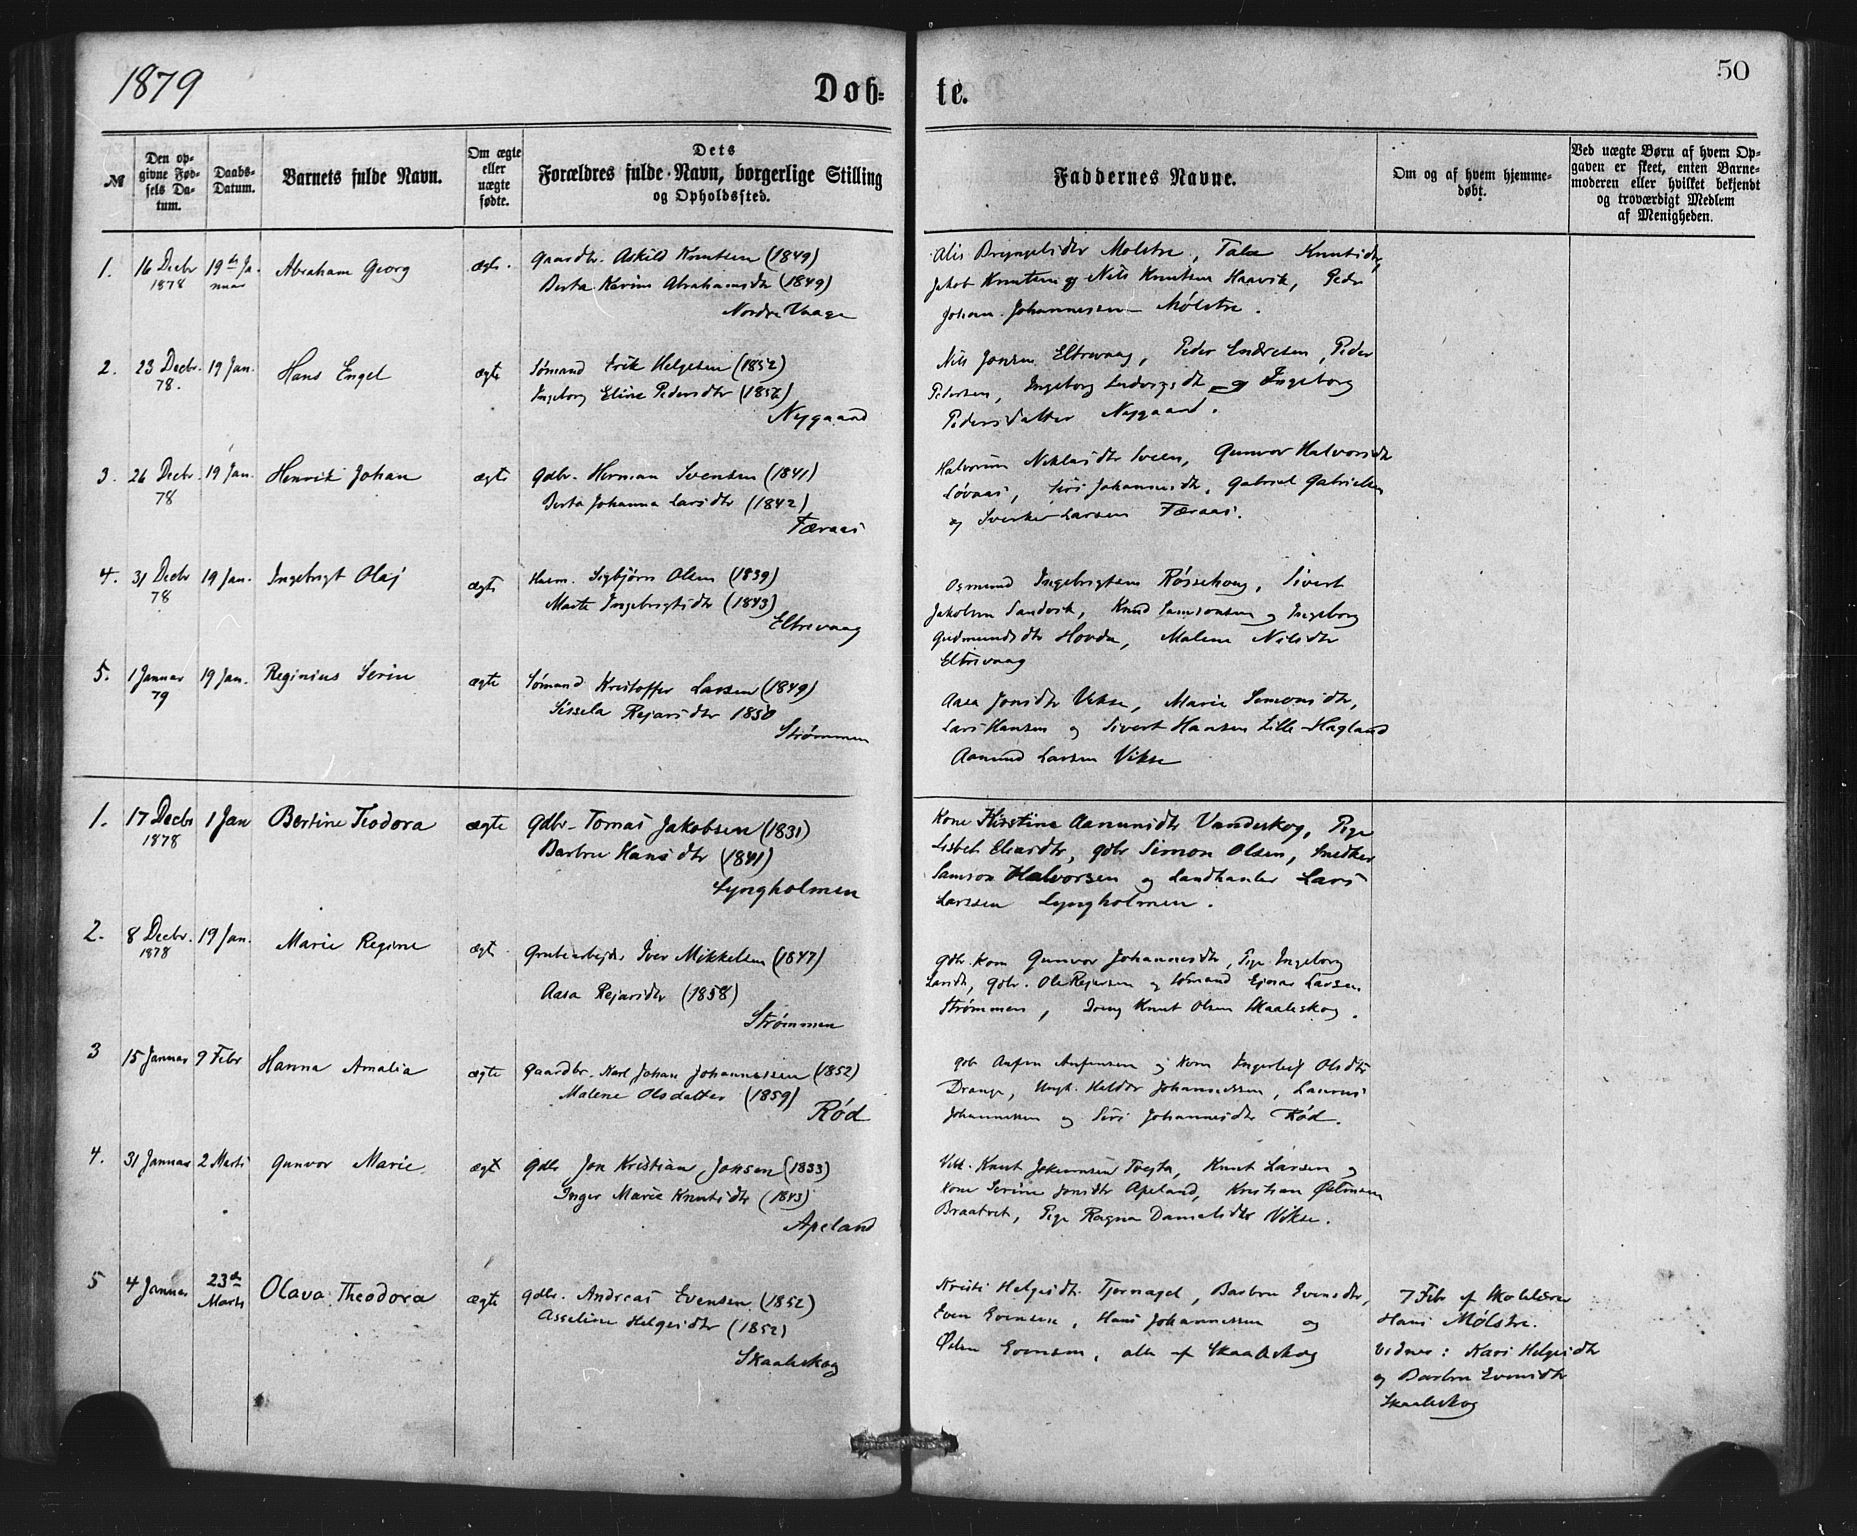 1879
Døbte.
50
№
Den opgivne Fødsels Datum.
Daabs-Datum.
Barnets fulde Navn.
Om ægte eller uægte fødte.
Dets Forældres fulde Navn, borgerlige Stilling og Opholdssted.
Faddernes Navne.
Om og af hvem hjemmedøbt.
Ved uægte Børn af hvem Opgaven er skeet, enten Barnemoderen eller hvilket bekjendt og troværdigt Medlem af Menigheden.
1. 16 Decbr 1878 19de Januar Abraham Georg ægte.
Gaardbr. Askild Knutsen (1849)
Berta Karine Abrahamsdtr (1849)
Nordre Vaage
Molstre, Knutsdtr,
Jakob Knutsen og Nils Knutsen Haavik, Peder
Johan Johannesen Mølstre.
2. 23 Decbr. 78. 19 Jan. Hans Engel ægte
Sømand Erik Helgesen (1852)
Ingeborg Eline Pedersdtr (1852)
Nygaard
Nils Jonsen Eltrevaag, Peder Endresen, Peder
Pedersen, Ingeborg Ludvigsdtr og Ingeborg
Pedersdatter Nygaard.
3. 26 Decbr. 78 19 Jan. Henrik Johan ægte
Gdbr. Herman Svensen (1841)
Berta Johanna Larsdtr (1842)
Færaas
Niklasdtr Sveen, Gunvor Halvorsdtr
Løvaas, Siri Johannesdtr, Gabriel Gabrielsen
og Sverker Larsen Færaas.
4. 31 Decbr 78 19 Jan. Ingebrigt Olaj ægte
Husm. Sigbjørn Olsen (1839)
Marte Ingebrigtsdtr (1843)
Eltrevaag
Osmund Ingebrigtsen Røssehaug, Sivert
Jakobsen Sandvik, Knud Samsonsen og Ingeborg
Gudmundsdtr Hovda, Malene Nilsdtr
Eltrevaag
5. 1 Januar 79 19 Jan. Reginius Serin ægte
Sømand Kristoffer Larsen (1849)
Sissela Rejarsdtr 1850
Strømmen
Aasa Jonsdtr Vikse, Marie Simonsdtr,
Lars Hansen og Sivert Hansen Lille-Hagland
Aamund Larsen Vikse
1. 17 Decbr 1878 1 Jan Bertine Teodora ægte
Gdbr. Tomas Jakobsen (1831)
Barbru Hansdtr (1841)
Lyngholmen
Kone Kirstine Aanunsdtr Vandaskog, Pige
Lisbet, gdbr Simon Olsen, Snedker
Samson Halvorsen og Landhandler Lars
Larssen Lyngholmen.
2. 8 Decbr. 1878 19 Jan. Marie Regine ægt
Grubearbejder Iver Mikkelsen (1847)
Aasa Rejarsdtr (1858)
Strømmen
gdbr. Kone Gunvor Johannesdtr, Pige Ingeborg
Larsdtr, gdbr. Ole Rejersen og Sømand Larsen
Strømmen, Dreng Knut Olsen Skaaleskog.
3 15 Januar 9 Febr Hanna Amalia ægte
Gaardbr. Karl Johan Johannessen (1852)
Malene Olsdatter (1859)
Rød
gdbr og Kone Olsdtr
Drange, Ungk. Johannessen, Laurus
Johannessen og Siri Johannesdtr Rød.
4. 31 Januar 2 Marts Gunvor Marie ægt
Gdbr Jon Kristian Jonsen (1833)
Inger Marie Knutsdtr (1843)
Apeland
Knut Johannesen Tveita, Knut Larsen og
Kone Serine Jonsdtr Apeland, Kristian Østensen
Braatvet, Pige Ragna Danielsdtr Vikse.
5 4 Januar 23de Marts Olava Theodora ægte
Gdbr. Andreas Evensen (1852)
Asseline Helgesdtr (1852)
Skaaleskog
Kristi Helgesdtr Tjernagel, Barbru Evensdtr,
Even Evensen, Hans Johannessen og
Østen Evensen, alle af Skaaleskog
7 Febr af Skolelærer
Hans Mølstre.
Vidner: Kari Helgesdtr
og Barbru Evensdtr
Skaaleskog